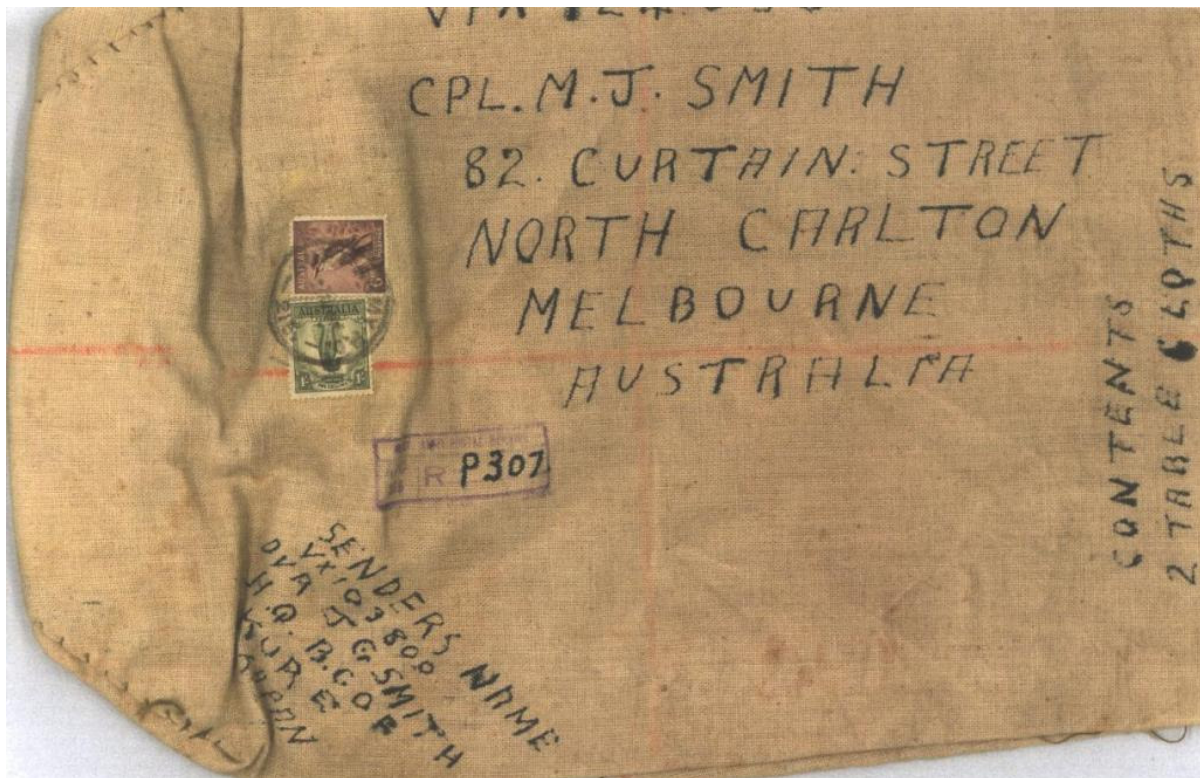 CPL. M. J. SMITH
82. CURTAIN. STREET
NORTH CARLTON
MELBOURNE
AUSTRALIA
AUSTRALIA
R P307
SENDERS NAME
VX103800
DVR J G SMITH
H.Q. B.C.O.F
KURE
JAPAN
CONTENTS
2 TABLE CLOTHS